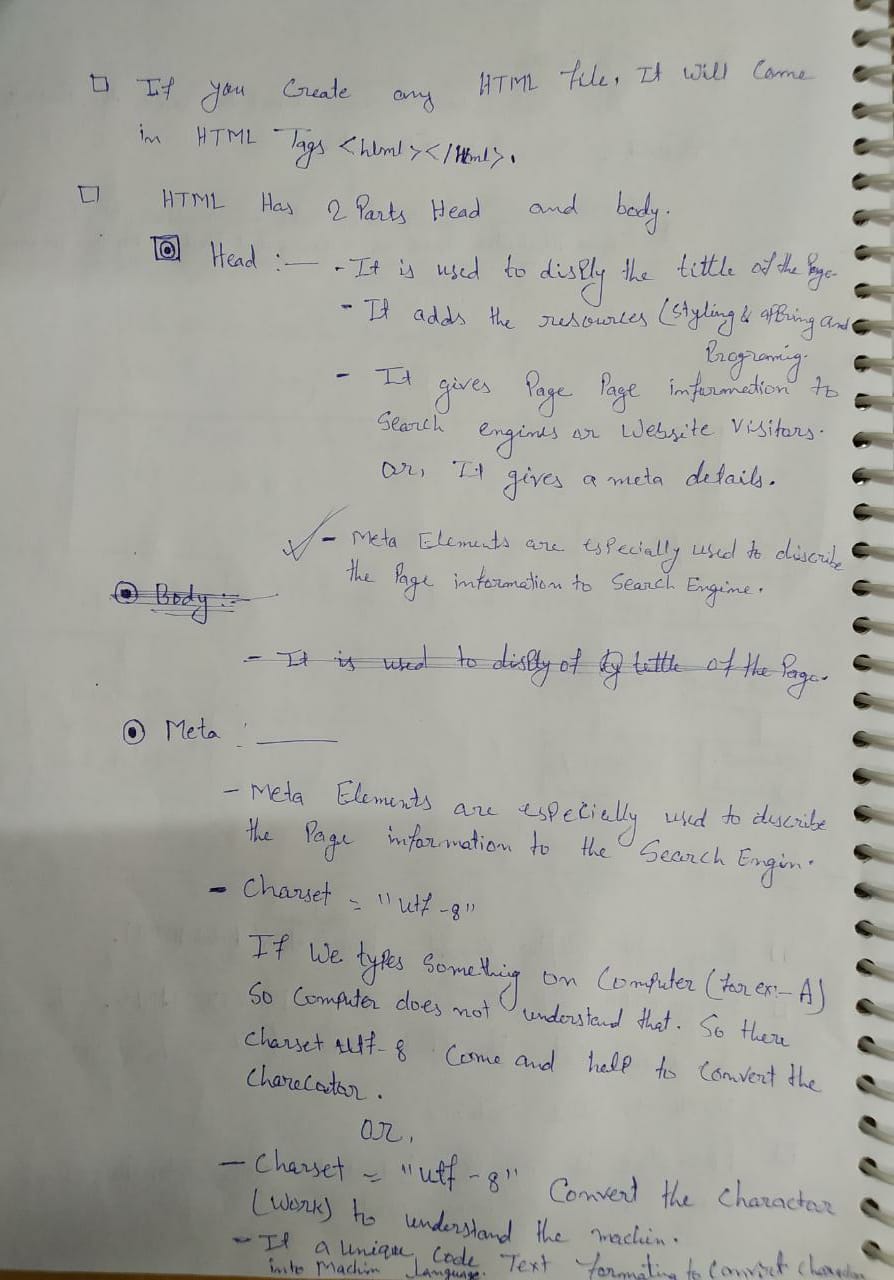 If you Create any HTML file, It will Come
in HTML Tags <html></Html>.
HTML Has 2 Parts Head and body.
Head :— - It is used to disply the tittle of the Page.
- It adds the resources (Styling & and
Programig.
- It gives Page Page information to
Search engines or Website Visitors.
or, It gives a meta details.
- Meta Elements are especially used to discribe
the Page information to Search Engine.
Body :-
- It is used to disply of tittle of the Page.
Meta :
- Meta Elements are especially used to describe
the Page information to the Search Engin.
- Charset = "utf-8"
If We types Something on Computer (for ex:- A)
So Computer does not understand that. So there
Charset utf-8 Come and help to Convert the
Charecator.
or,
- Charset = "utf-8" Convert the Charactar
(Work) to understand the machin.
- It a unique Code Text formating to Convirt
into Machin Language.